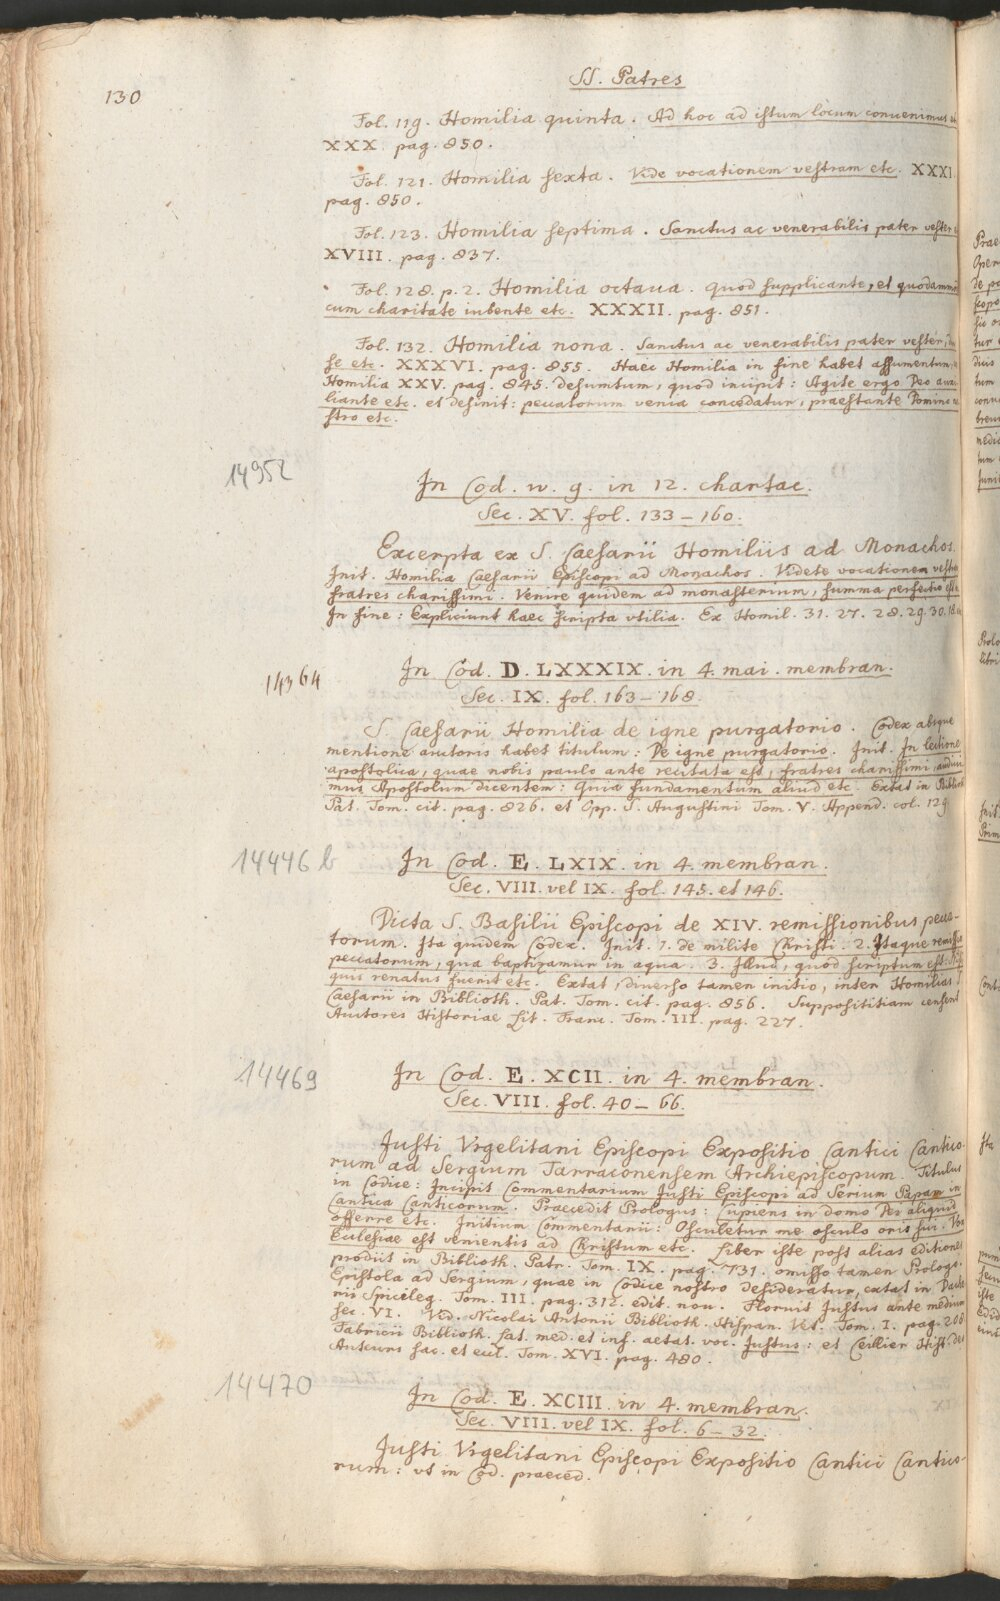 130
SS. Patres
Fol. 119. Homilia quinta. Ad hoc ad istum locum convenimus
XXX. pag. 850.
Fol. 121. Homilia sexta. Vide vocationem vestram etc. XXXI.
pag. 850.
Fol. 123. Homilia septima. Sanctus ac venerabilis pater vester
XVIII. pag. 837.
Fol. 128. p. 2. Homilia octava. quod supplicante, et quodammo
cum charitate iubente etc. XXXII. pag. 851.
Fol. 132. Homilia nona. Sanctus ac venerabilis pater vester,
se etc. XXXVI. pag. 855. Haec Homilia in fine habet assumentum,
Homilia XXV. pag. 845. desumtum, quod incipit: Agite ergo Deo auxi
liante etc. et desinit: peccatorum venia concedatur, praestante Domino
stro etc.
14952
In Cod. w. g. in 12. chartac.
Sec. XV. fol. 133–160.
Excerpta ex S. Caesarii Homiliis ad Monachos.
Init. Homilia Caesarii Episcopi ad Monachos. Videte vocationem vestra
fratres charissimi. Venire quidem ad monasterium, summa perfectio est
In fine: Expliciunt haec scripta vtilia. Ex Homil. 31. 27. 28. 29. 30. 18.
14364
In Cod. D. LXXXIX. in 4. mai. membran.
Sec. IX. fol. 163–168.
S. Caesarii Homilia de igne purgatorio. Codex absque
mentione auctoris habet titulum: De igne purgatorio. Init. In lectione
apostolica, quae nobis paulo ante recitata est, fratres charissimi, audiui
mus Apostolum dicentem: Quia fundamentum aliud etc. Extat in Biblioth
Pat. Tom. cit. pag. 826. et Opp. S. Augustini Tom. V. Append. col. 129
14446 b
In Cod. E. LXIX. in 4. membran.
Sec. VIII. vel IX. fol. 145. et 146.
Dicta S. Basilii Episcopi de XIV. remissionibus pecca-
torum. Ita quidem Codex. Init. 1. de milite Christi. 2. Itaque remissio
peccatorum, qua baptizamur in aqua. 3. Illud, quod scriptum est:
quis renatus fuerit etc. Extat, diuerso tamen initio, inter Homilias
Caesarii in Biblioth. Pat. Tom. cit. pag. 856. Supposititiam censent
Auctores Historiae Lit. Franc. Tom. III. pag. 227.
14469
In Cod. E. XCII. in 4. membran.
Sec. VIII. fol. 40–66.
Justi Vrgelitani Episcopi Expositio Cantici Cantico-
rum ad Sergium Tarraconensem Archiepiscopum. Titulus
in Codice: Incipit Commentarium Justi Episcopi ad Serium Papam in
Cantica Canticorum. Praecedit Prologus: Cupiens in domo Dei aliquid
offerre etc. Initium Commentarii: Osculetur me osculo oris sui. Vox
Ecclesiae est venientis ad Christum etc. Liber iste post alias editiones
prodiit in Biblioth. Patr. Tom. IX. pag. 731. omisso tamen Prologo.
Epistola ad Sergium, quae in Codice nostro desideratur, extat in Dache
rii Spicileg. Tom. III. pag. 312. edit. nou. Floruit Justus ante medium
sec. VI. Vid. Nicolai Antonii Biblioth. Hispan. Vet. Tom. I. pag. 208
Fabricii Biblioth. Lat. med. et inf. aetat. voc. Justus: et Ceillier Hist. des
Auteurs sac. et eccl. Tom. XVI. pag. 480.
14470
In Cod. E. XCIII. in 4. membran.
Sec. VIII. vel IX. fol. 6–32.
Justi Vrgelitani Episcopi Expositio Cantici Cantico-
rum: vt in Cod. praeced.